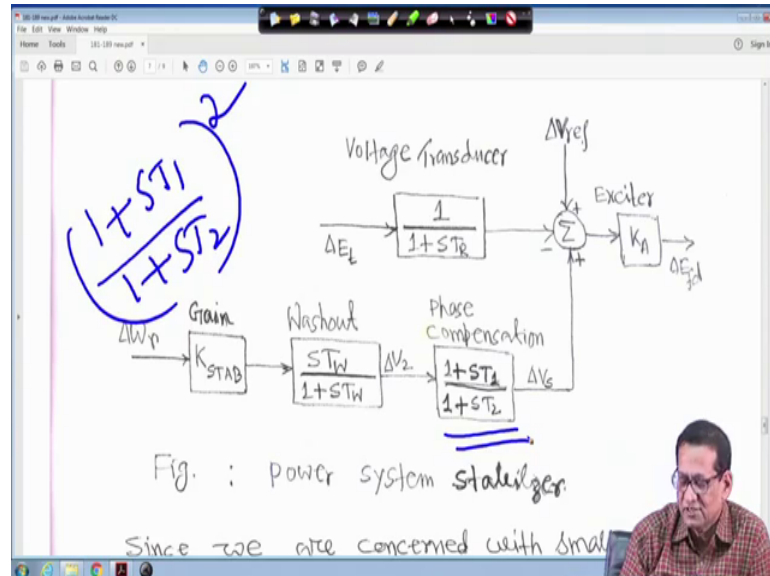 181-189 new.pdf - Adobe Acrobat Reader DC
File Edit View Window Help
Home Tools 181-189 new.pdf ×
Sign In
7 / 9 167%
(1+ST1 / 1+ST2)2
Voltage Transducer
ΔVref
Exciter
ΔEt
1
1+STR
Σ
+
-
+
KA
ΔEfd
Gain
Washout
Phase
Compensation
ΔWr
KSTAB
STW
1+STW
ΔV2
1+ST1
1+ST2
ΔVs
Fig. : power system stabilizer.
Since we are concerned with small